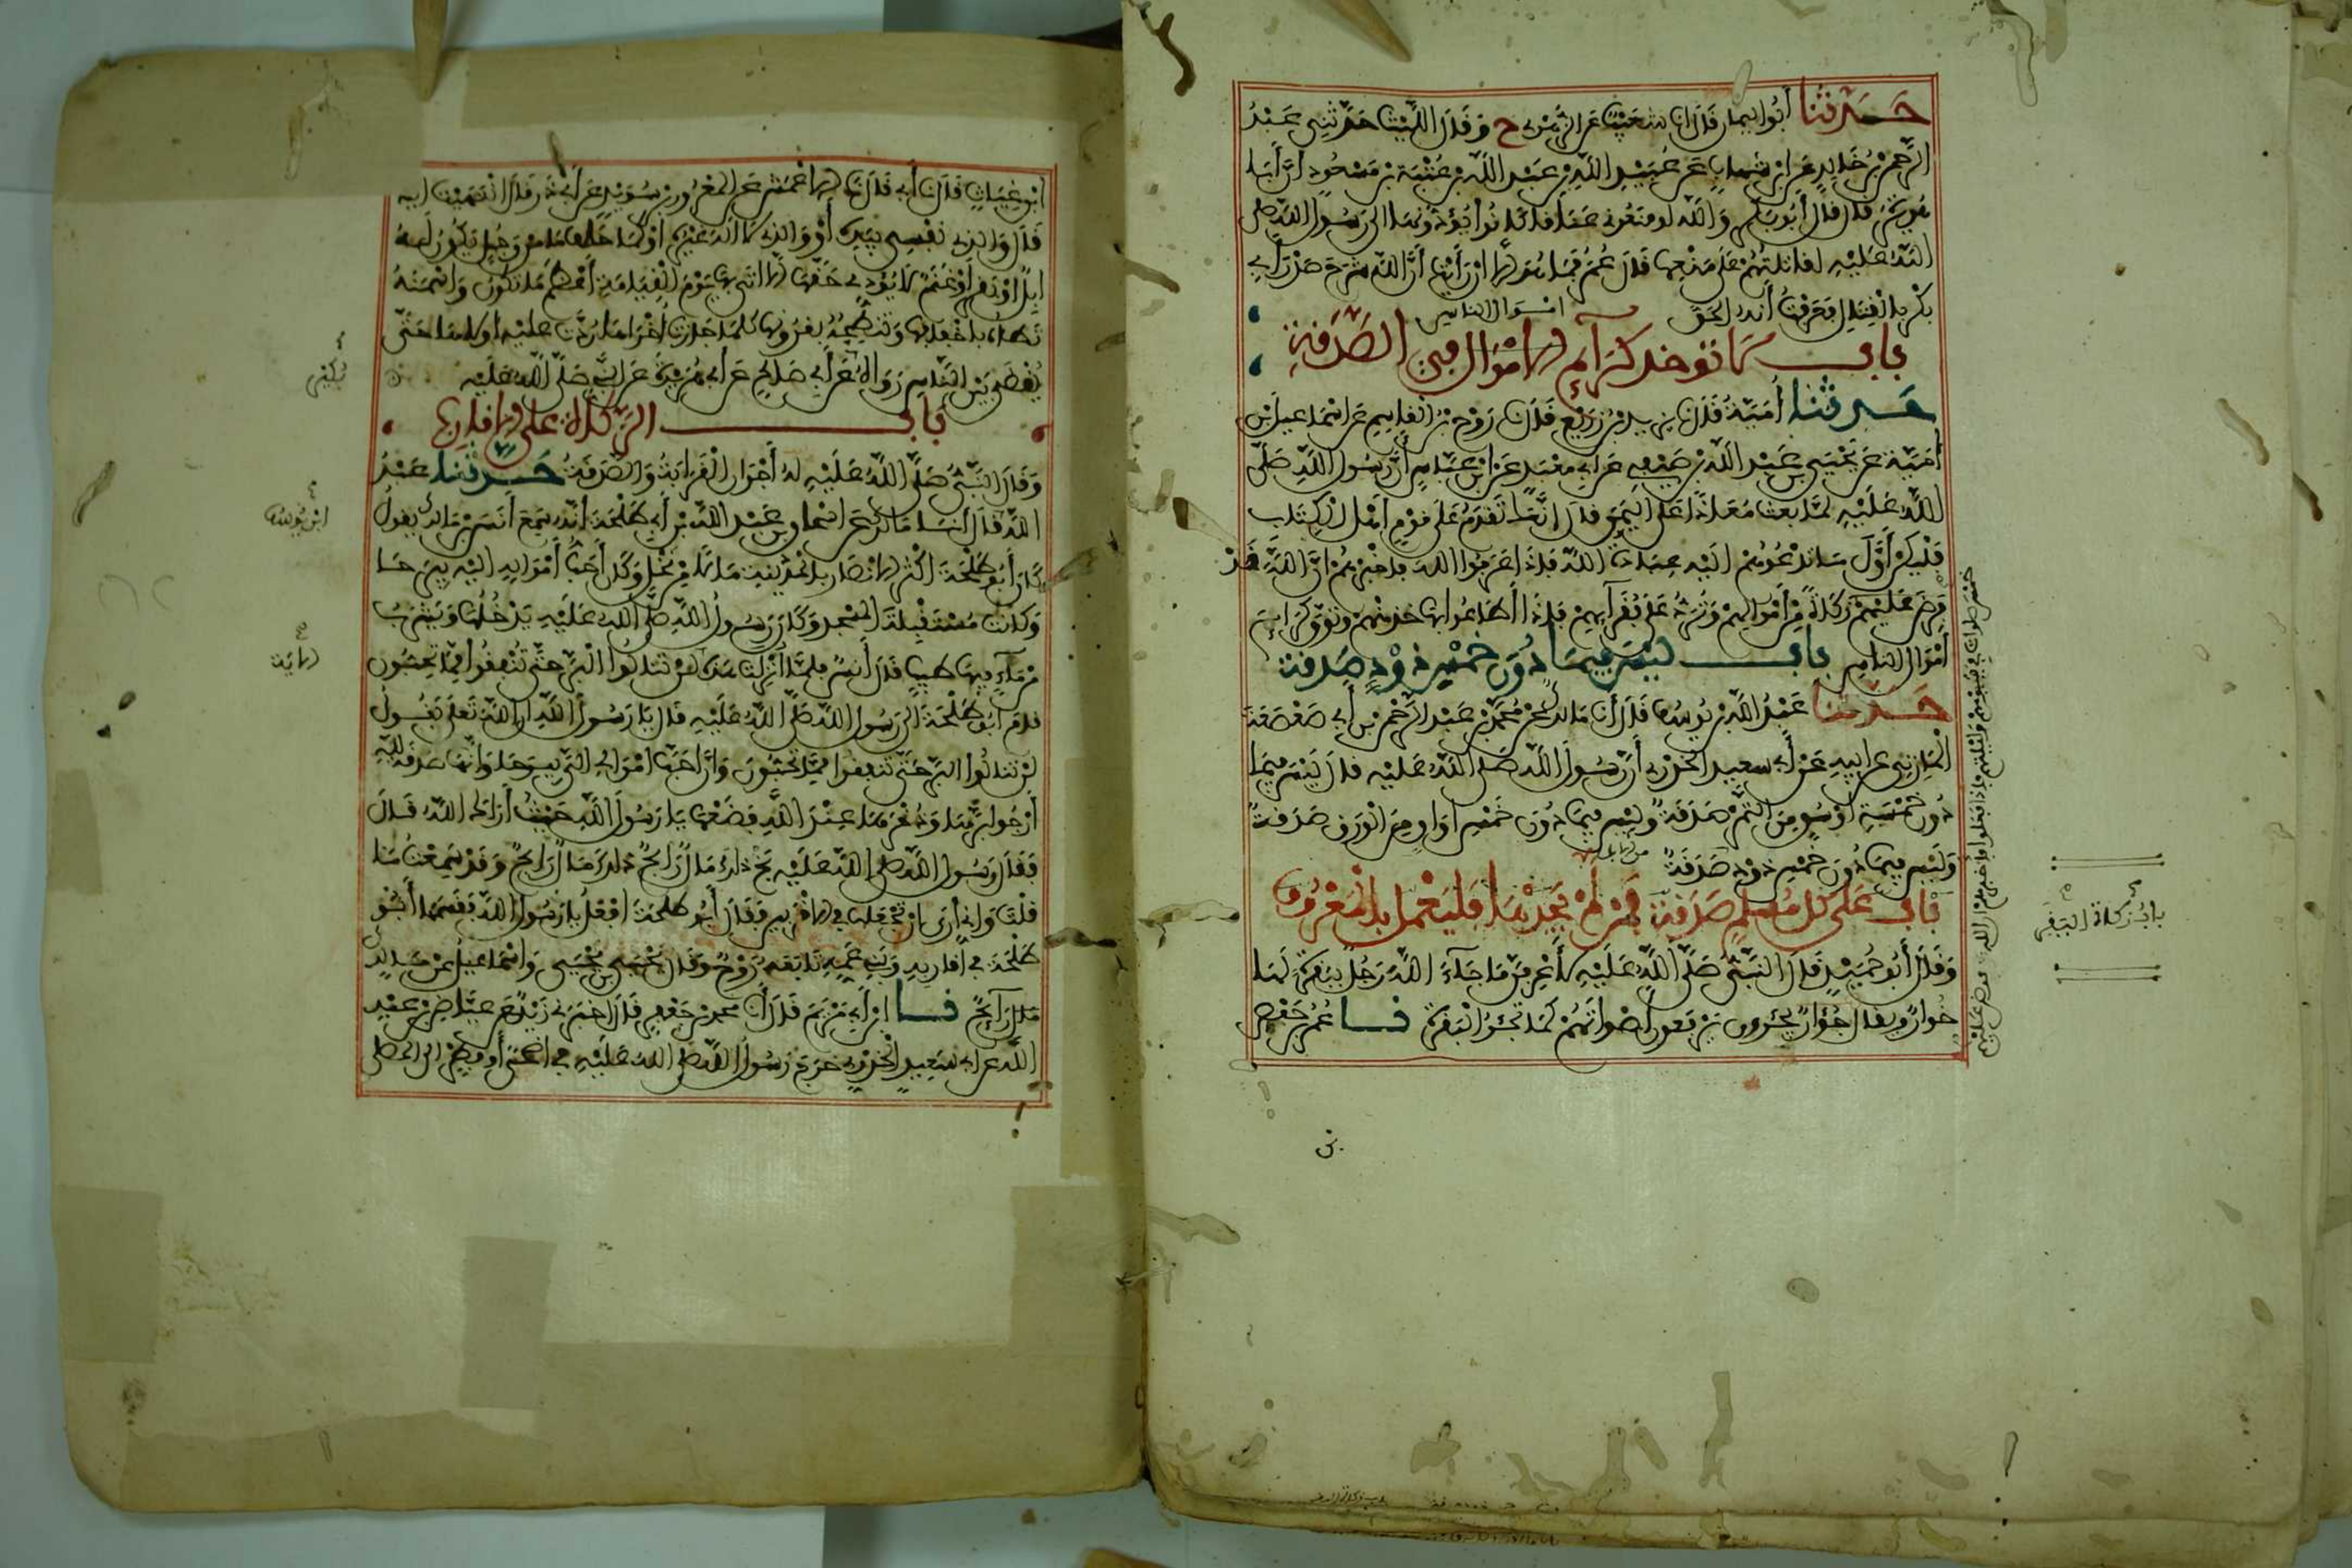 حدثنا أبو اليمان قال انا شعيب عن الزهري ح وقال الليث حدثني عبد
الرحمن بن خالد عن ابن شهاب عن عبيد الله بن عبد الله بن عتبة بن مسعود أن أبا
هريرة قال قال أبو بكر والله لو منعوني عناقا كانوا يؤدونها الى رسول الله صلى
الله عليه لقاتلتهم على منعها قال عمر فما هو الا ان رأيت أن الله شرح صدر أبي
بكر بالقتال فعرفت أنه الحق
اموال الناس
باب لا توخذ كرائم الاموال في الصدقة
حدثنا أمية قال نا يزيد بن زريع قال نا روح بن القاسم عن اسماعيل بن
أمية عن يحيى بن عبد الله بن صيفي عن ابي معبد عن ابن عباس أن رسول الله صلى
الله عليه لما بعث معاذا على اليمن قال انك تقدم على قوم أهل الكتاب
فليكن أول ما تدعوهم اليه عبادة الله فاذا عرفوا الله فاخبرهم ان الله قد
فرض عليهم زكاة من أموالهم وترد على فقرائهم فاذا اطاعوا بها خذ منهم وتوق كرائم
أموال الناس باب ليس فيما دون خمس ذود صدقة
حدثنا عبد الله بن يوسف قال أنا مالك عن محمد بن عبد الرحمن بن أبي صعصعة
المازني عن ابيه عن أبي سعيد الخدري أن رسول الله صلى الله عليه قال ليس فيما
دون خمسة أوسق من التمر صدقة وليس فيما دون خمس أواق من الورق صدقة
وليس فيما دون خمس ذود صدقة
باب على كل مسلم صدقة فمن لم يجد بدا فليعمل بالمعروف
وقال أبو حميد قال النبي صلى الله عليه لأعرفن ما جاء الله رجل ببقرة لها
خوار ويقال جؤار يجأرون يرفعون أصواتهم كما تجأر البقرة نا عمر بن حفص
بن
خمس صلوات في يومهم وليلتهم فاذا فعلوا فأخبرهم أن الله فرض عليهم
باب زكاة البقر
ابن غياث قال نا أبي قال نا الاعمش عن المعرور بن سويد عن أبي ذر قال انتهيت اليه
قال والذي نفسي بيده أو والذي لا اله غيره أو كما حلف ما من رجل تكون له
ابل او بقر أو غنم لا يؤدي حقها الا اتي بها يوم القيامة أعظم ما تكون واسمنه
تطأه باخفافها وتنطحه بقرونها كلما جازت أخراها ردت عليه أولاها حتى
يقضى بين الناس رواه عن أبي صالح عن أبي هريرة عن النبي صلى الله عليه
باب الزكاة على الاقارب
وقال النبي صلى الله عليه له أجران القرابة والصدقة حدثنا عبد
الله قال أنا مالك عن اسحاق بن عبد الله بن أبي طلحة أنه سمع أنس بن مالك يقول
كان أبو طلحة اكثر الانصار بالمدينة مالا من نخل وكان أحب أمواله اليه بيرحا
وكانت مستقبلة المسجد وكان رسول الله صلى الله عليه يدخلها ويشرب
من ماء فيها طيب قال أنس فلما أنزلت هذه لن تنالوا البر حتى تنفقوا مما تحبون
قام أبو طلحة الى رسول الله صلى الله عليه قال يا رسول الله ان الله تعالى يقول
لن تنالوا البر حتى تنفقوا مما تحبون وان احب اموالي الي بيرحا وانها صدقة لله
أرجوا برها وذخرها عند الله فضعها يا رسول الله حيث أراك الله قال
فقال رسول الله صلى الله عليه بخ ذلك مال رابح ذلك مال رابح وقد سمعت ما
قلت واني أرى ان تجعلها في الاقربين فقال أبو طلحة افعل يا رسول الله فقسمها أبو
طلحة في أقاربه وبني عمه تابعه روح وقال يحيى بن يحيى واسماعيل عن مالك
مال رائح نا ابن أبي مريم قال أنا محمد بن جعفر قال اخبرني زيد عن عياض بن عبد
الله عن ابي سعيد الخدري خرج رسول الله صلى الله عليه في اضحى أو فطر الى المصلى
بكير
ابن يوسف
الاية